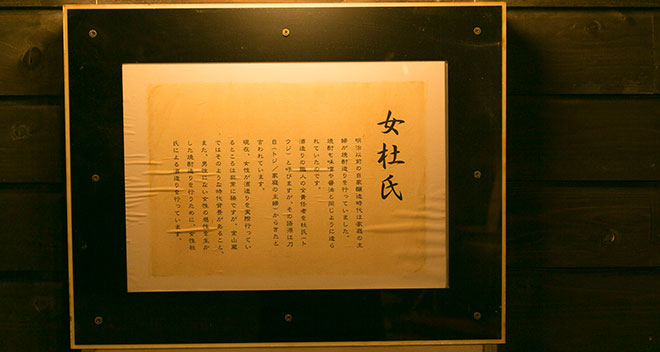 女杜氏
明治以前の自家醸造時代は家庭の主
婦が焼酎造りを行っていました。
焼酎も味噌や醤油と同じように造ら
れていたのです。
酒造りの職人の全責任者を杜氏(ト
ウジ)と呼びますが、その語源は刀
自(トジ/家庭の主婦)からきたと
言われています。
現在、女性が酒造りを実際行ってい
るところは非常に稀ですが、金山蔵
ではそのような時代背景があること、
また、男性にない女性の感性を生か
した焼酎造りを行うために、女性杜
氏による酒造りを行っています。